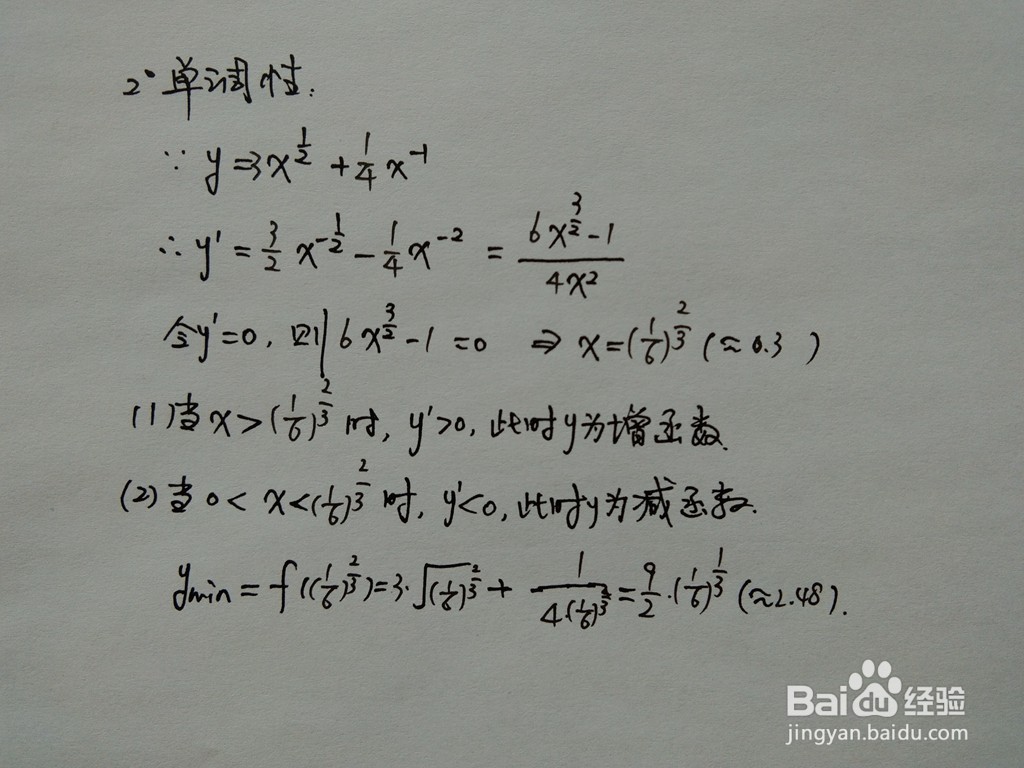 2° 单调性:
∵ y=3x^{1/2} + 1/4 x^{-1}
∴ y' = 3/2 x^{-1/2} - 1/4 x^{-2} = (6x^{3/2} - 1)/(4x^2)
令y'=0, 则 6x^{3/2} - 1 = 0 ⇒ x=(1/6)^{2/3} (≈0.3)
(1)当 x>(1/6)^{2/3} 时, y'>0, 此时y为增函数.
(2)当 0<x<(1/6)^{2/3} 时, y'<0, 此时y为减函数.
ymin = f((1/6)^{2/3})=3·√(1/6)^{2/3} + 1/(4·(1/6)^{2/3}) = 9/2·(1/6)^{1/3} (≈2.48).
Baidu经验
jingyan.baidu.com